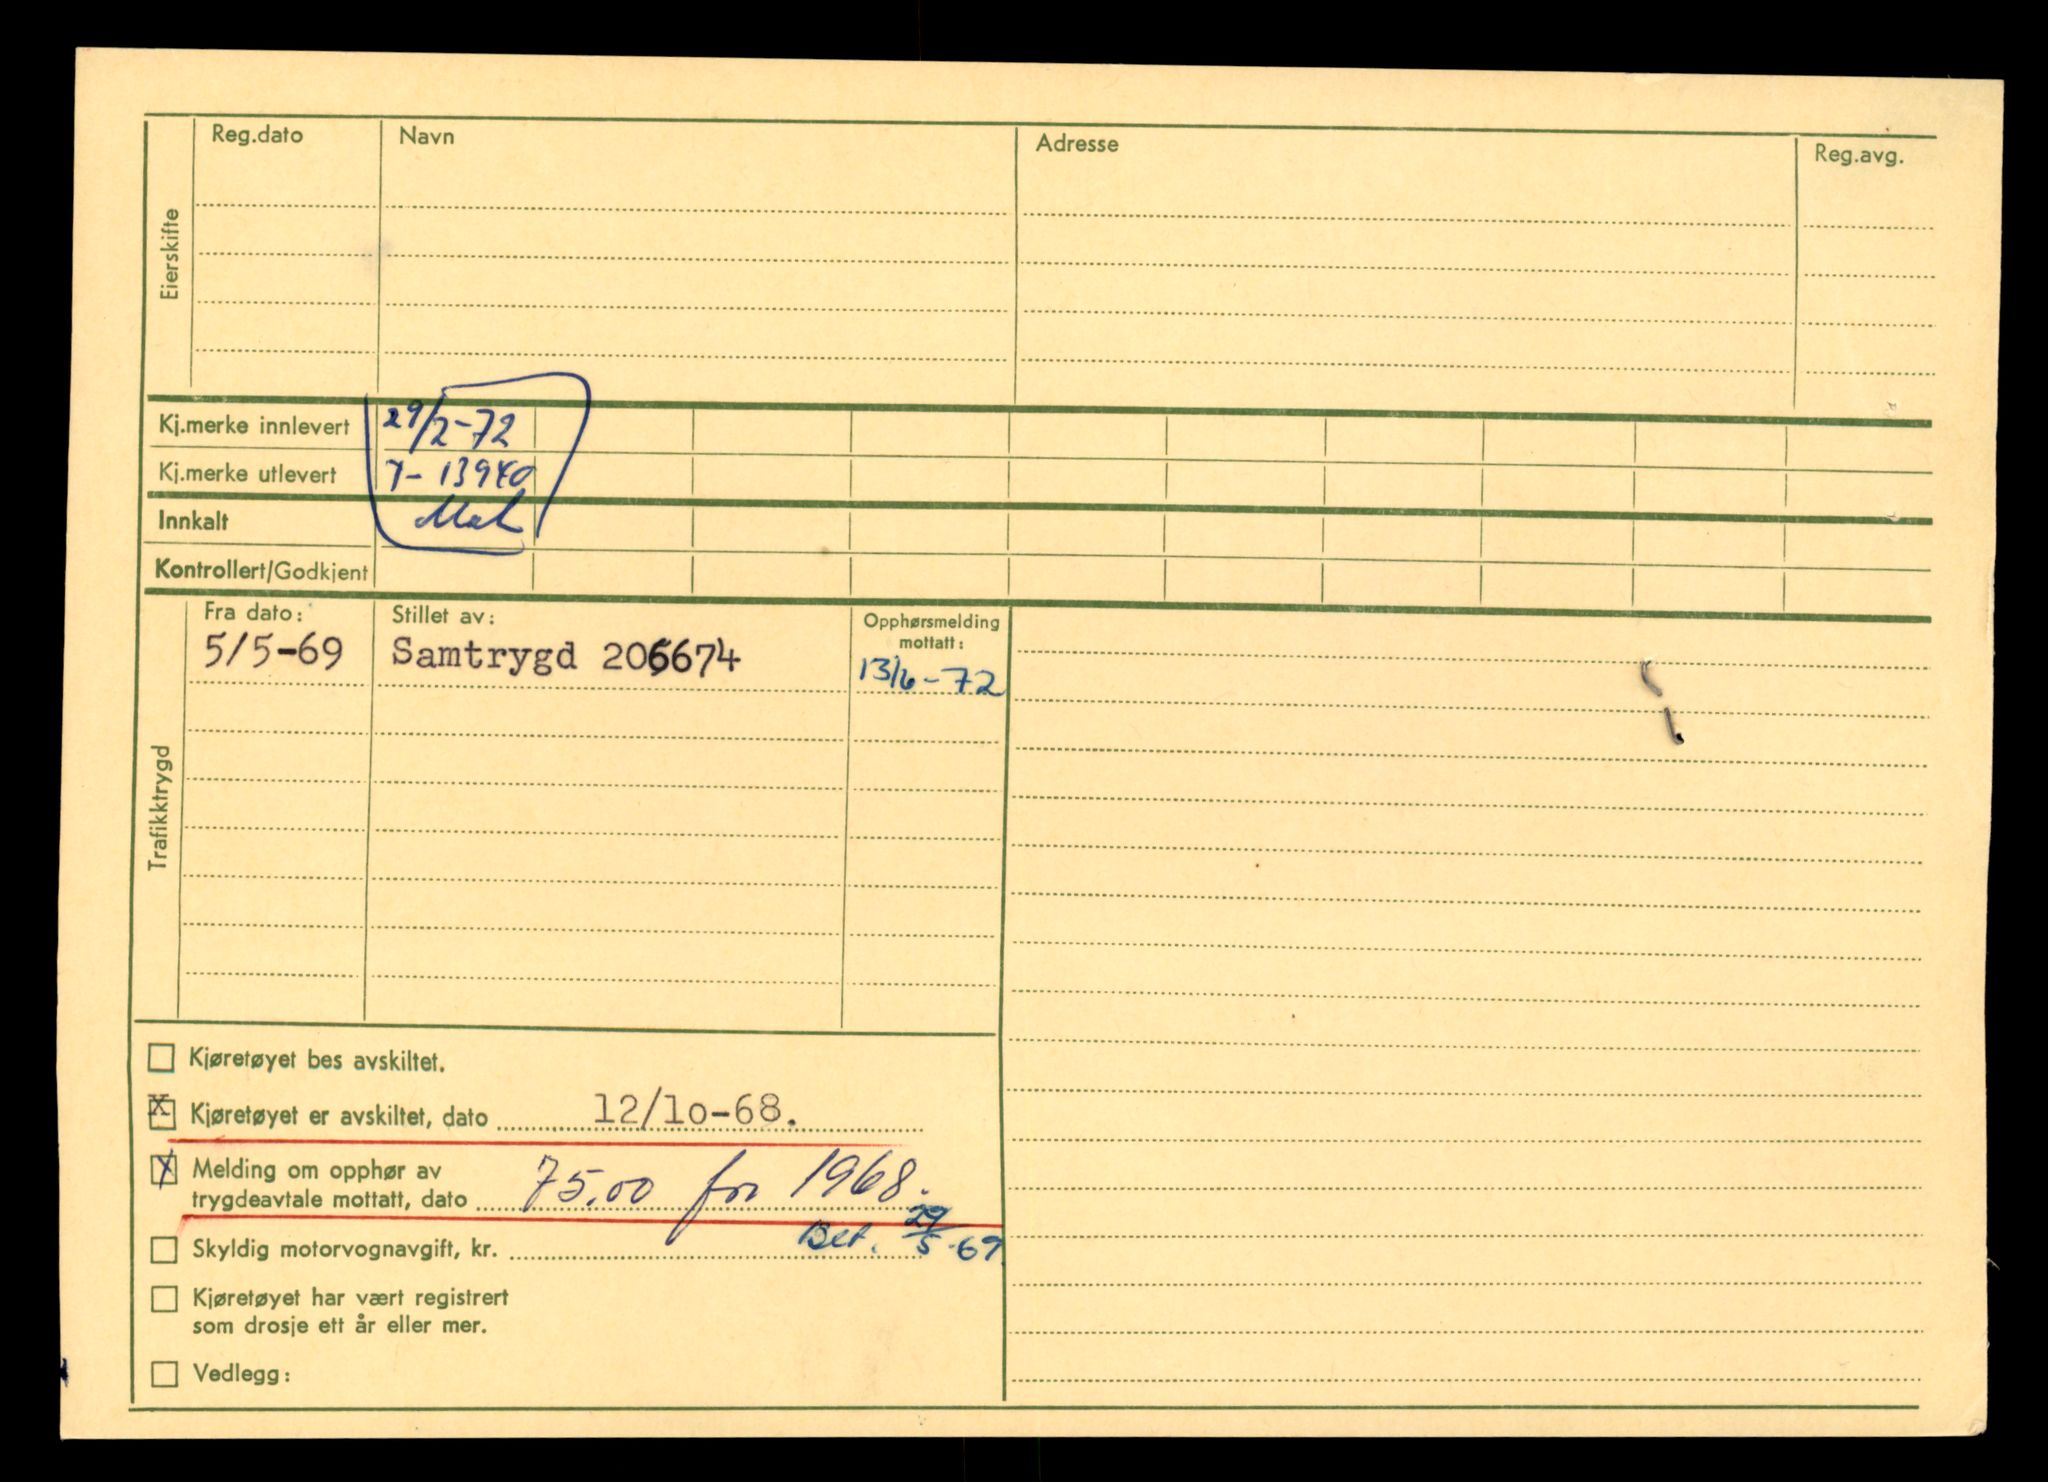 Eierskifte
Reg.dato Navn Adresse Reg.avg.
Kj.merke innlevert 29/2-72
Kj.merke utlevert T-13940
Innkalt
Kontrollert/Godkjent
Trafikktrygd
Fra dato: Stillet av: Opphørsmelding mottatt:
5/5-69 Samtrygd 206674 13/6-72
Kjøretøyet bes avskiltet.
X Kjøretøyet er avskiltet, dato 12/10-68.
X Melding om opphør av
trygdeavtale mottatt, dato 75.00 for 1968.
Skyldig motorvognavgift, kr. Bet. 29/5-69
Kjøretøyet har vært registrert
som drosje ett år eller mer.
Vedlegg: